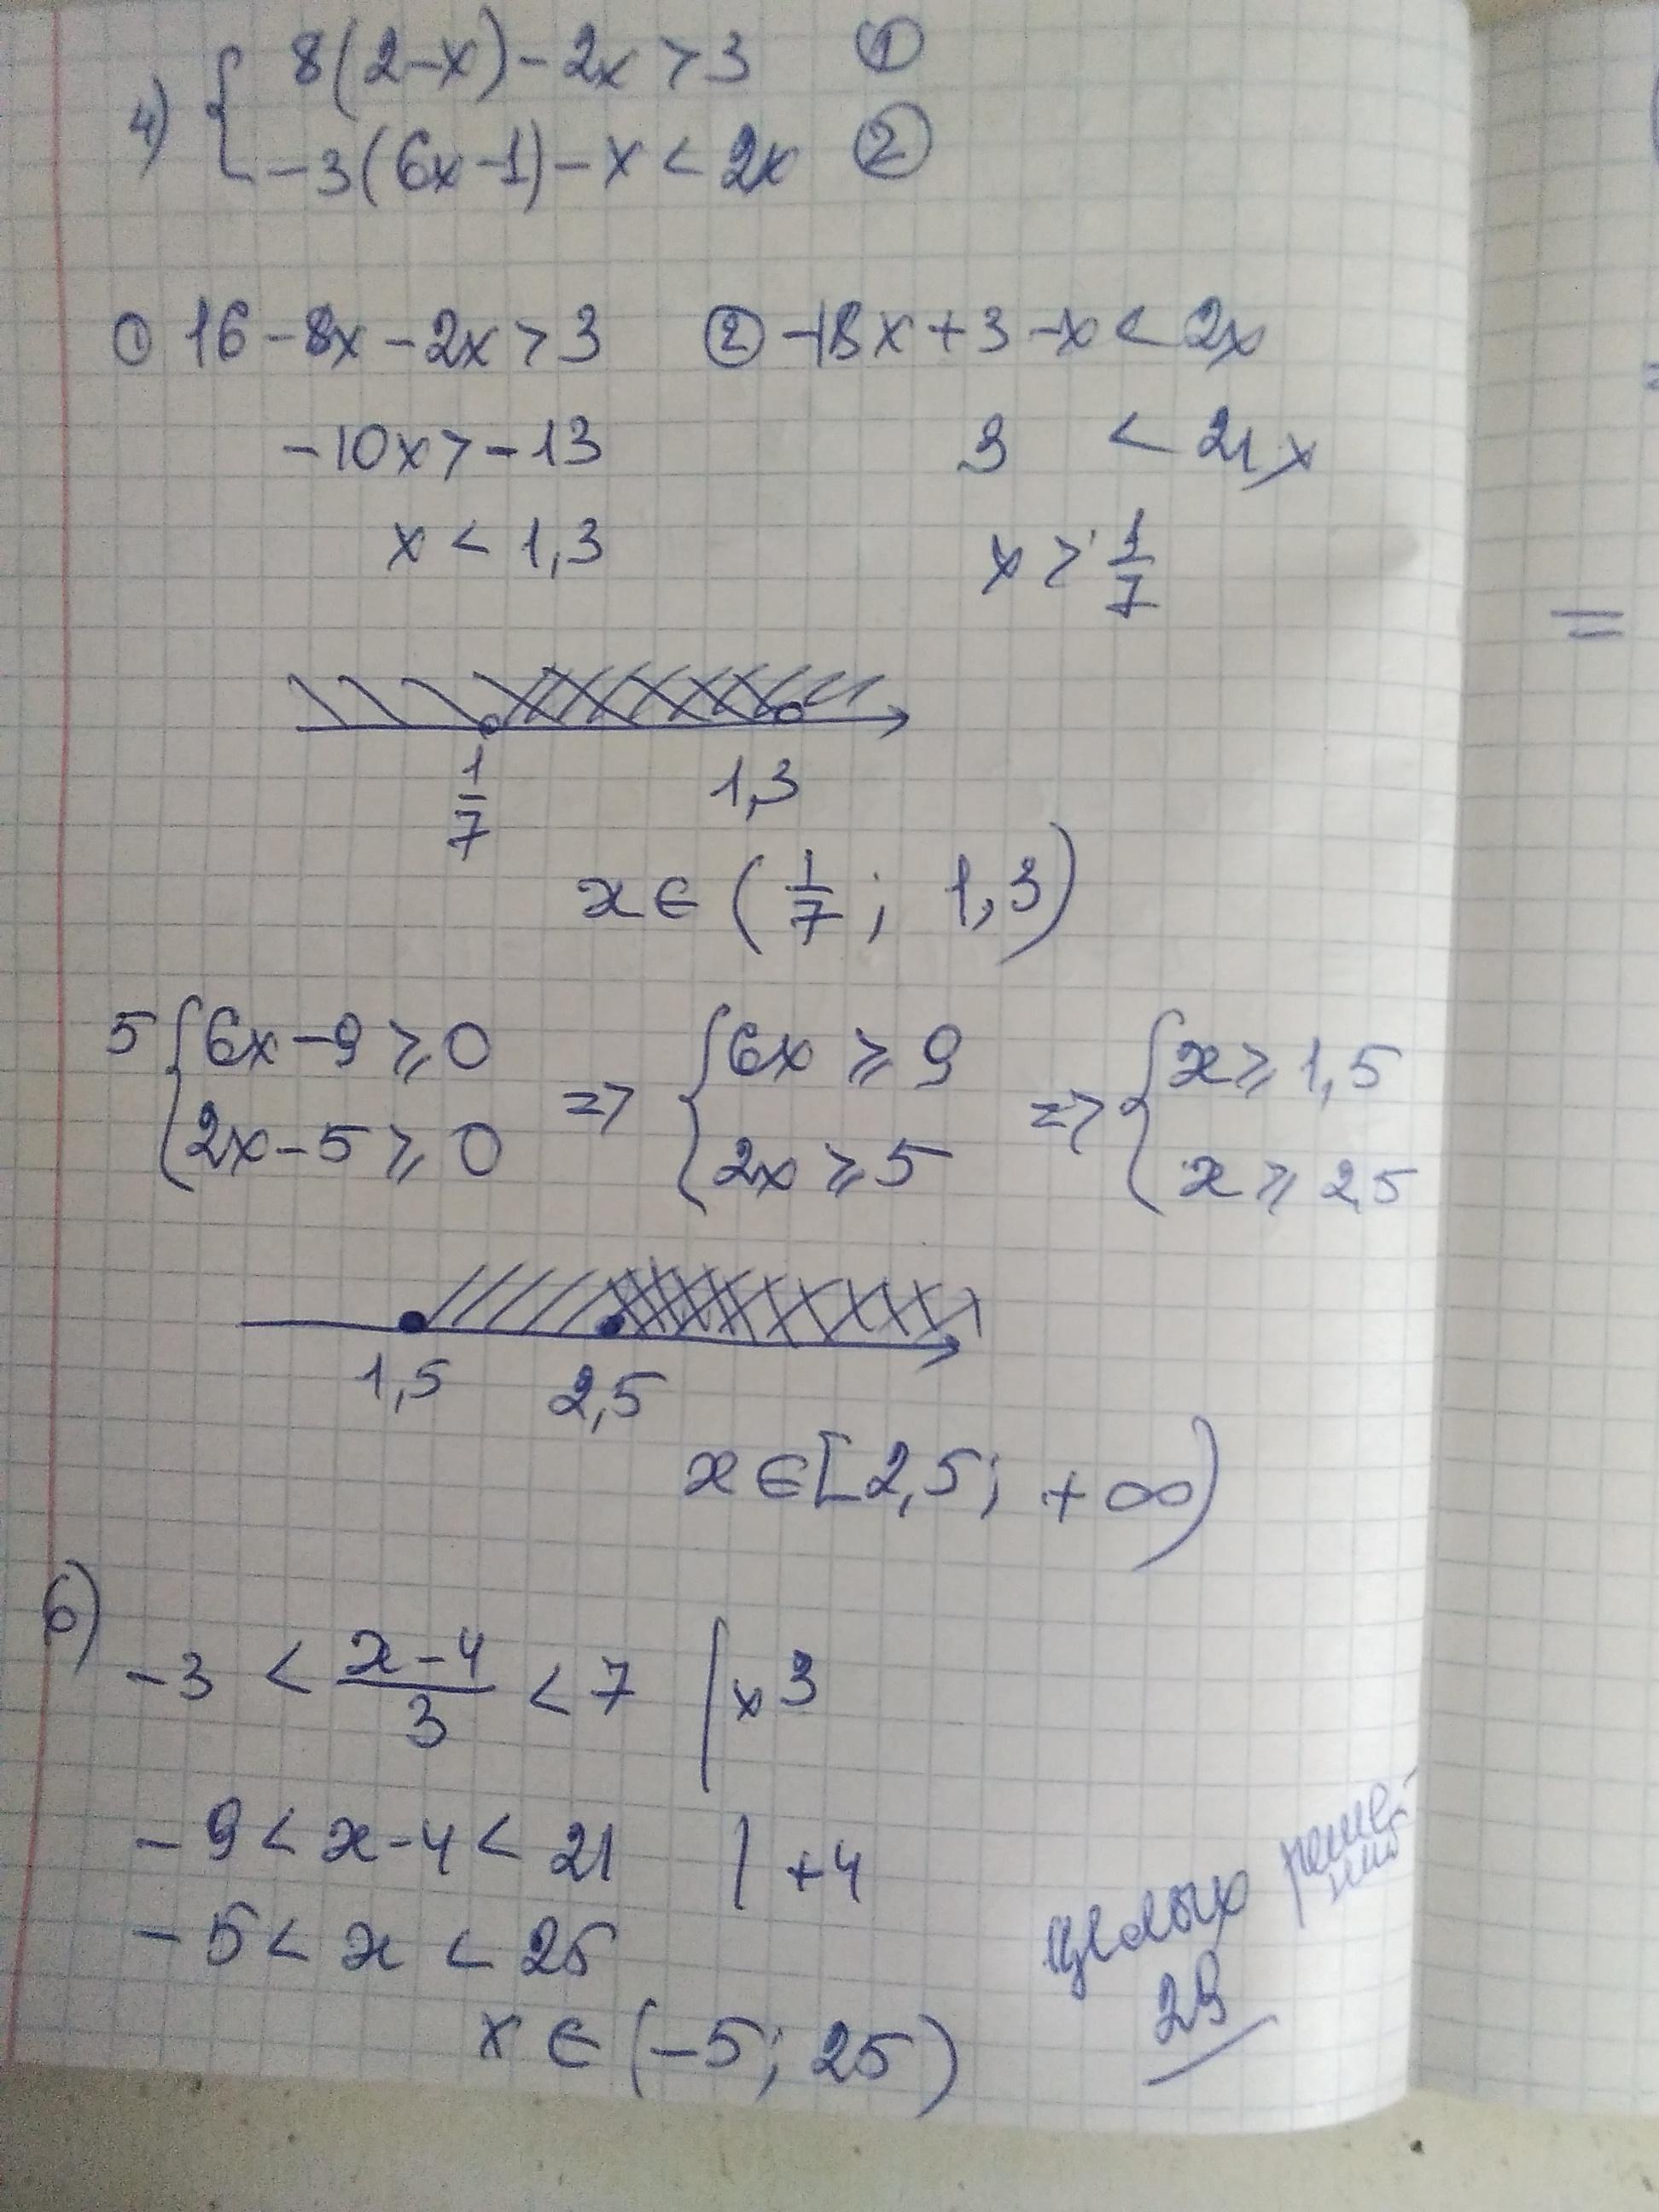 4) { 8(2-x)-2x > 3 ①
-3(6x-1)-x < 2x ②
① 16-8x-2x > 3 ② -18x+3-x < 2x
-10x > -13 3 < 21x
x < 1,3 x > 1/7
1/7 1,3
x ∈ (1/7; 1,3)
5 { 6x-9 ⩾ 0 => { 6x ⩾ 9 => { x ⩾ 1,5
2x-5 ⩾ 0 2x ⩾ 5 x ⩾ 2,5
1,5 2,5
x ∈ [2,5; +∞)
6)
-3 < (x-4)/3 < 7 | × 3
-9 < x-4 < 21 | +4
-5 < x < 25
x ∈ (-5; 25)
целых реше-
ний
29